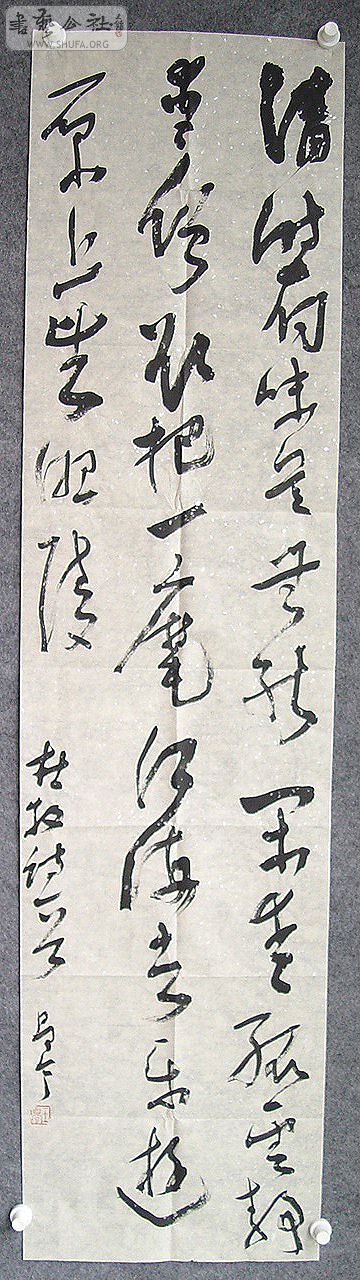 書藝公社
WWW.SHUFA.ORG
清時有味是無能閑愛孤雲靜
愛僧欲把一麾江海去樂遊
原上望昭陵
杜牧詩一首